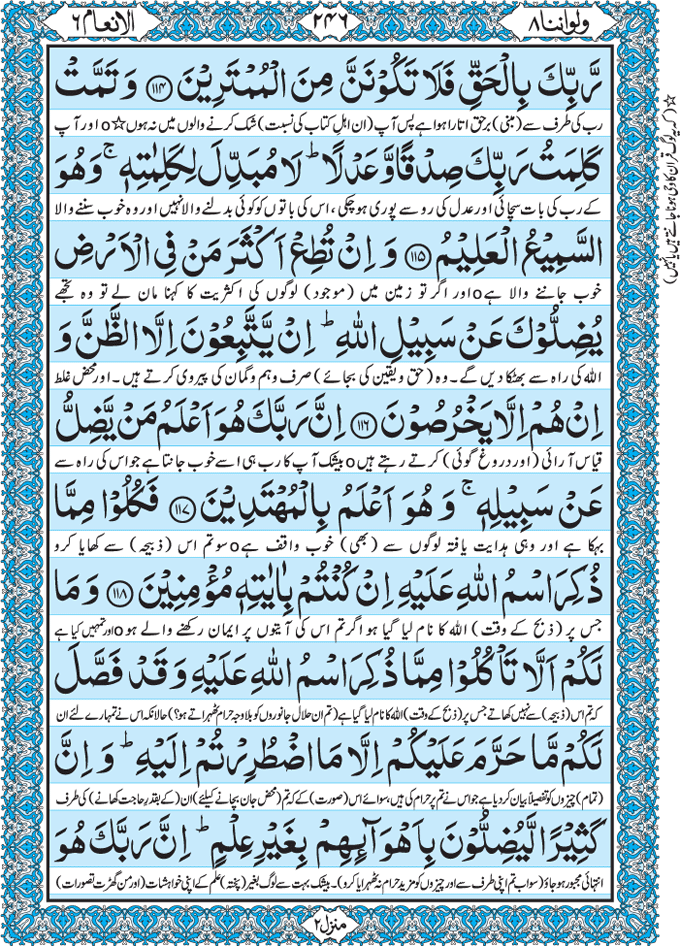 ولواننا ٨
٢٤٦
الانعام ٦
رَّبِّكَ بِالۡحَقِّ فَلَا تَكُوۡنَنَّ مِنَ الۡمُمۡتَرِيۡنَ ﴿١١٤﴾ وَ تَمَّتۡ
رب کی طرف سے (مبنی) برحق اتارا ہوا ہے پس آپ (ان اہلِ کتاب کی نسبت) شک کرنے والوں میں نہ ہوں☆o اور آپ
كَلِمَتُ رَبِّكَ صِدۡقًا وَّعَدۡلًا ؕ لَا مُبَدِّلَ لِكَلِمٰتِهٖ ۚ وَهُوَ
کے رب کی بات سچائی اور عدل کی رو سے پوری ہو چکی، اس کی باتوں کو کوئی بدلنے والا نہیں اور وہ خوب سننے والا
السَّمِيۡعُ الۡعَلِيۡمُ ﴿١١٥﴾ وَ اِنۡ تُطِعۡ اَكۡثَرَ مَنۡ فِى الۡاَرۡضِ
خوب جاننے والا ہےo اور اگر تو زمین میں (موجود) لوگوں کی اکثریت کا کہنا مان لے تو وہ تجھے
يُضِلُّوۡكَ عَنۡ سَبِيۡلِ اللهِ ؕ اِنۡ يَّتَّبِعُوۡنَ اِلَّا الظَّنَّ وَ
اللہ کی راہ سے بھٹکا دیں گے۔ وہ (حق و یقین کی بجائے) صرف وہم و گمان کی پیروی کرتے ہیں۔ اور محض غلط
اِنۡ هُمۡ اِلَّا يَخۡرُصُوۡنَ ﴿١١٦﴾ اِنَّ رَبَّكَ هُوَ اَعۡلَمُ مَنۡ يَّضِلُّ
قیاس آرائی (اور دروغ گوئی) کرتے رہتے ہیںo بیشک آپ کا رب ہی اسے خوب جانتا ہے جو اس کی راہ سے
عَنۡ سَبِيۡلِهٖ ۚ وَ هُوَ اَعۡلَمُ بِالۡمُهۡتَدِيۡنَ ﴿١١٧﴾ فَكُلُوۡا مِمَّا
بہکا ہے اور وہی ہدایت یافتہ لوگوں سے (بھی) خوب واقف ہےo سو تم اس (ذبیحہ) سے کھایا کرو
ذُكِرَ اسۡمُ اللهِ عَلَيۡهِ اِنۡ كُنۡتُمۡ بِاٰيٰتِهٖ مُؤۡمِنِيۡنَ ﴿١١٨﴾ وَ مَا
جس پر (ذبح کے وقت) اللہ کا نام لیا گیا ہو اگر تم اس کی آیتوں پر ایمان رکھنے والے ہوo اور تمہیں کیا ہے
لَكُمۡ اَلَّا تَاۡكُلُوۡا مِمَّا ذُكِرَ اسۡمُ اللهِ عَلَيۡهِ وَ قَدۡ فَصَّلَ
کہ تم اس (ذبیحہ) سے نہیں کھاتے جس پر (ذبح کے وقت) اللہ کا نام لیا گیا ہے (تم ان حلال جانوروں کو بلا وجہ حرام ٹھہراتے ہو؟) حالانکہ اس نے تمہارے لئے ان
لَكُمۡ مَّا حَرَّمَ عَلَيۡكُمۡ اِلَّا مَا اضۡطُرِرۡتُمۡ اِلَيۡهِ ؕ وَ اِنَّ
(تمام) چیزوں کو تفصیلاً بیان کر دیا ہے جو اس نے تم پر حرام کی ہیں، سوائے اس (صورت) کے کہ تم (محض جان بچانے کیلئے) ان (کے بقدرِ حاجت کھانے) کی طرف
كَثِيۡرًا لَّيُضِلُّوۡنَ بِاَهۡوَآئِهِمۡ بِغَيۡرِ عِلۡمٍ ؕ اِنَّ رَبَّكَ هُوَ
انتہائی مجبور ہو جاؤ (سو اب تم اپنی طرف سے اور چیزوں کو مزید حرام نہ ٹھہرایا کرو)۔ بیشک بہت سے لوگ بغیر (پختہ) علم کے اپنی خواہشات (اور من گھڑت تصورات)
☆ (کہ یہ لوگ قرآن کا وحی ہونا جانتے ہیں یا نہیں)
منزل ٢